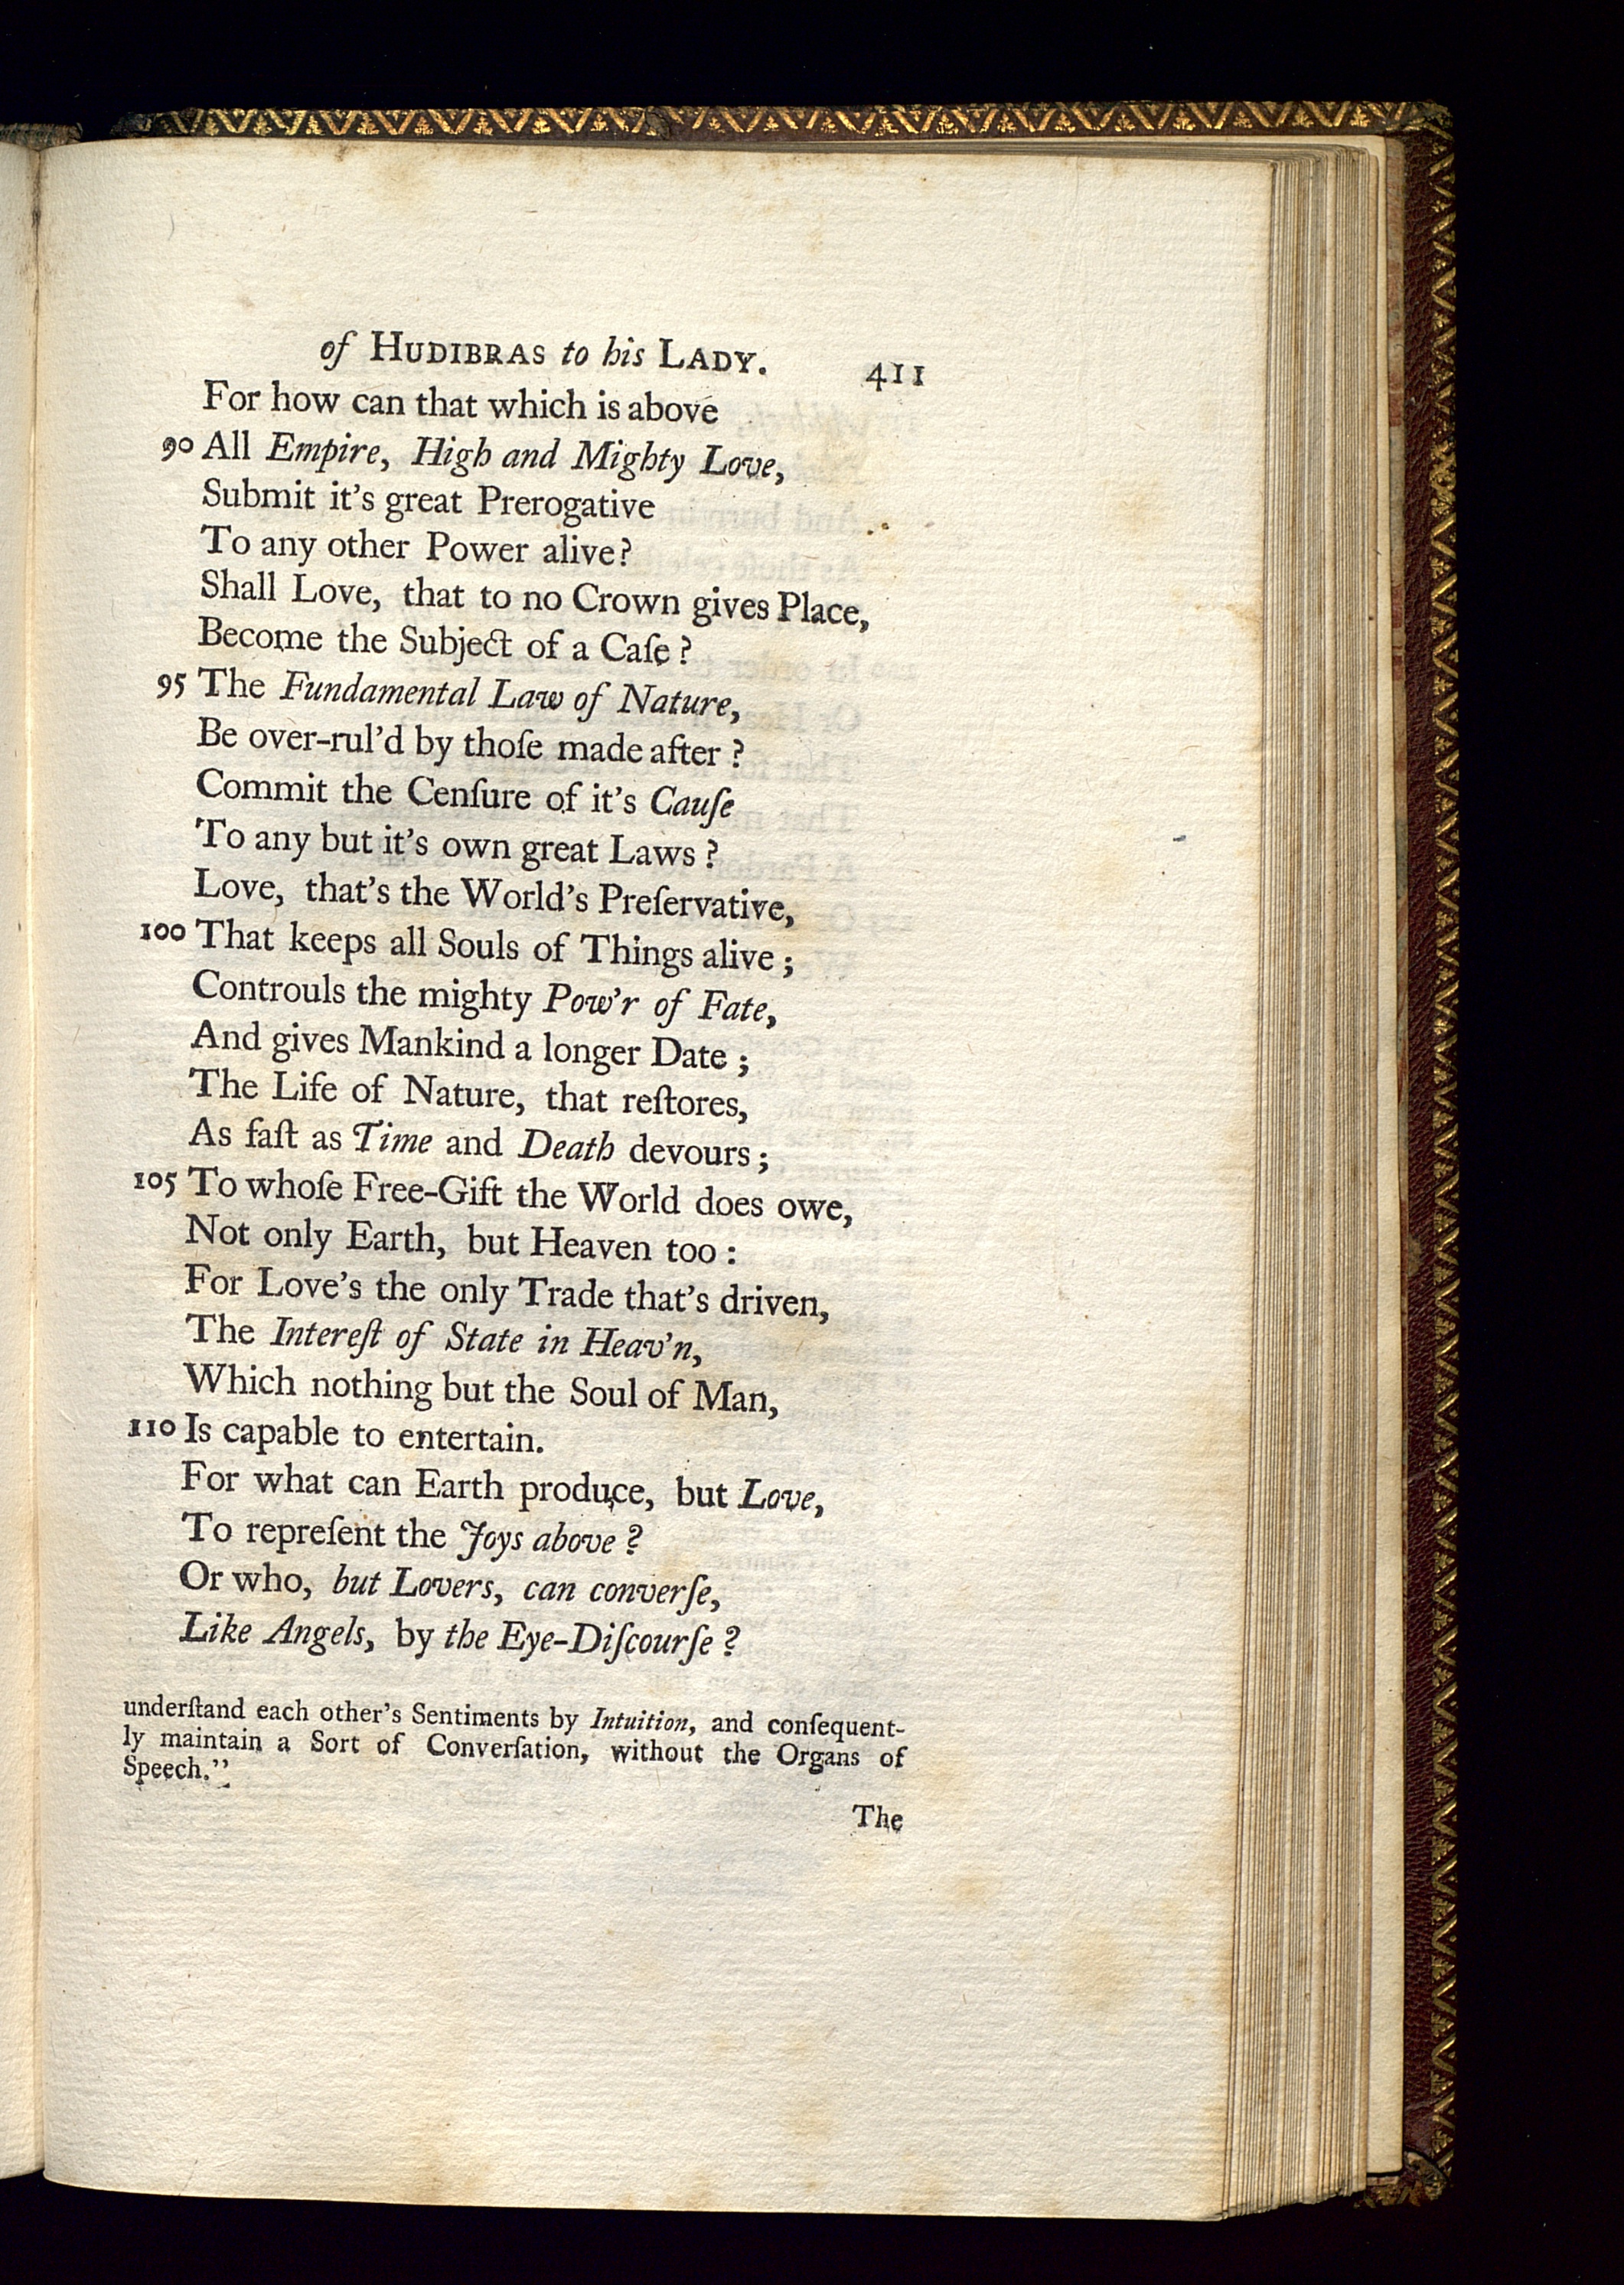 of HUDIBRAS to his LADY. 411
For how can that which is above
90 All Empire, High and Mighty Love,
Submit it's great Prerogative
To any other Power alive?
Shall Love, that to no Crown gives Place,
Become the Subject of a Caſe?
95 The Fundamental Law of Nature,
Be over-rul'd by thoſe made after?
Commit the Cenſure of it's Cauſe
To any but it's own great Laws?
Love, that's the World's Preſervative,
100 That keeps all Souls of Things alive;
Controuls the mighty Pow'r of Fate,
And gives Mankind a longer Date;
The Life of Nature, that reſtores,
As faſt as Time and Death devours;
105 To whoſe Free-Gift the World does owe,
Not only Earth, but Heaven too:
For Love's the only Trade that's driven,
The Intereſt of State in Heav'n,
Which nothing but the Soul of Man,
110 Is capable to entertain.
For what can Earth produce, but Love,
To repreſent the Joys above?
Or who, but Lovers, can converſe,
Like Angels, by the Eye-Diſcourſe?
underſtand each other's Sentiments by Intuition, and conſequent-
ly maintain a Sort of Converſation, without the Organs of
Speech."
The